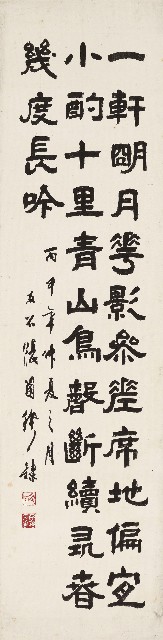 一軒朙月華影參差席地偏宜
小酌十里青山鳥聲斷續尋春
幾度長吟
丙申年仲夏之月
張國
隸